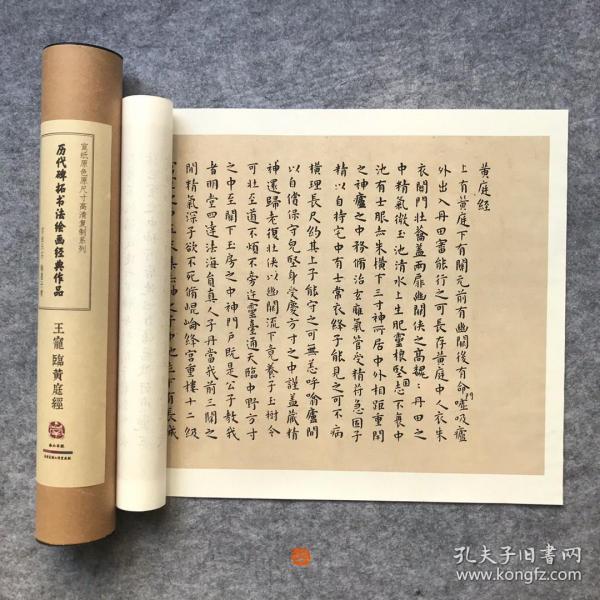 宣纸原色原尺寸高清复制系列
历代碑拓书法绘画经典作品
王寵 臨黃庭經
黃庭經
上有黃庭下有關元前有幽闕後有命噓吸廬
門
外出入丹田審能行之可長存黃庭中人衣朱
衣關門壯籥蓋兩扉幽闕俠之高巍巍丹田之
中精氣微玉池清水上生肥靈根堅志不衰中
固
池有士服赤朱橫下三寸神所居中外相距重閇
之神廬之中務脩治玄癰氣管受精符急固子
精以自持宅中有士常衣絳子能見之可不病
橫理長尺約其上子能守之可無恙呼噏廬間
以自償保守完堅身受慶方寸之中謹蓋藏精
神還歸老復壯俠以幽闕流下竟養子玉樹令
可壯至道不煩不旁迕靈臺通天臨中野方寸
之中至關下玉房之中神門戶既是公子教我
者明堂四達法海員真人子丹當我前三關之
間精氣深子欲不死脩崐崘絳宮重樓十二級
孔夫子旧书网
www.kongfz.com